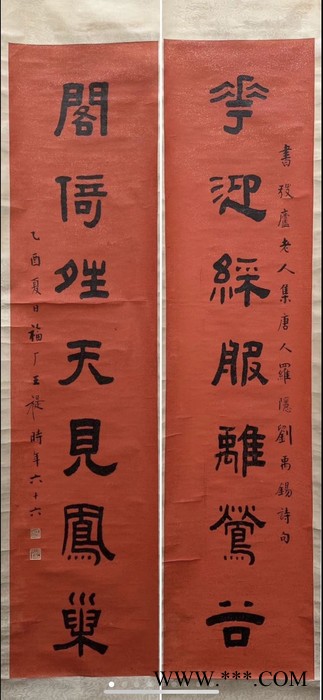 書弢廬老人集唐人羅隱劉禹錫詩句
華迎綵服離鶯谷
閣倚夝天見鳳巢
乙酉夏日福厂王禔時年六十六
WWW.***.COM